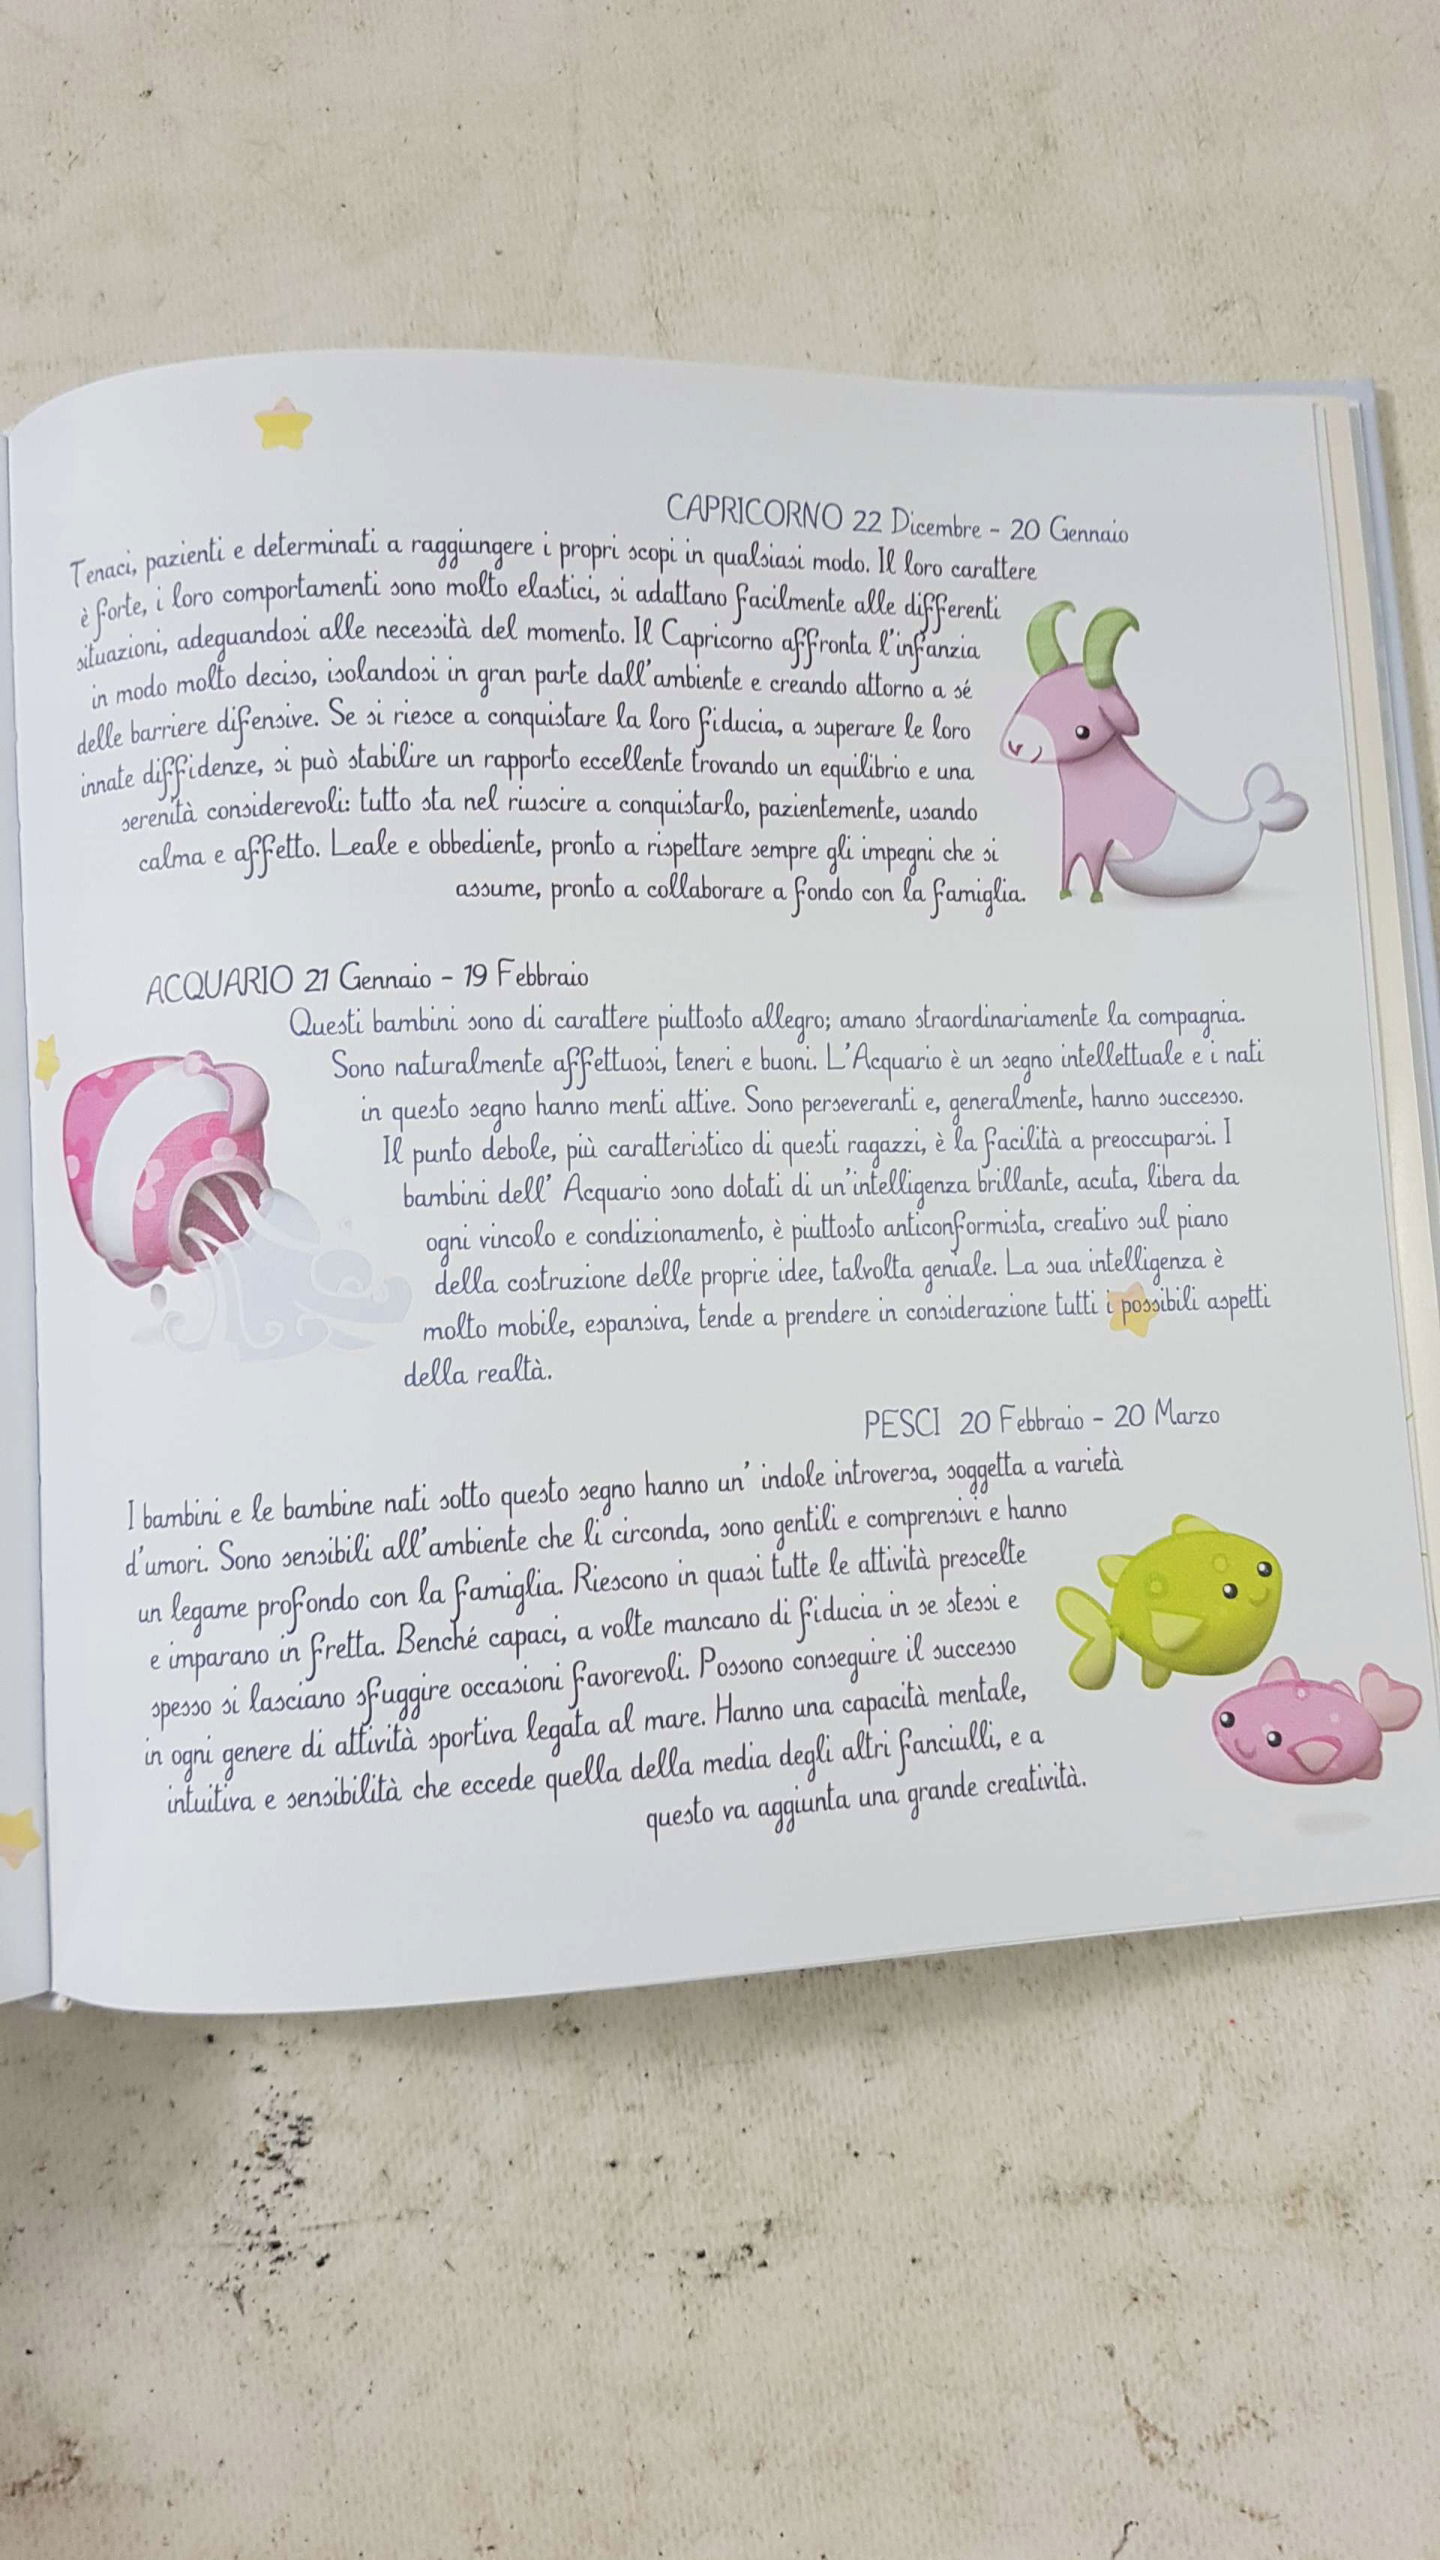 CAPRICORNO 22 Dicembre - 20 Gennaio
Tenaci, pazienti e determinati a raggiungere i propri scopi in qualsiasi modo. Il loro carattere
è forte, i loro comportamenti sono molto elastici, si adattano facilmente alle differenti
situazioni, adeguandosi alle necessità del momento. Il Capricorno affronta l'infanzia
in modo molto deciso, isolandosi in gran parte dall'ambiente e creando attorno a sé
delle barriere difensive. Se si riesce a conquistare la loro fiducia, a superare le loro
innate diffidenze, si può stabilire un rapporto eccellente trovando un equilibrio e una
serenità considerevoli: tutto sta nel riuscire a conquistarlo, pazientemente, usando
calma e affetto. Leale e obbediente, pronto a rispettare sempre gli impegni che si
assume, pronto a collaborare a fondo con la famiglia.
ACQUARIO 21 Gennaio - 19 Febbraio
Questi bambini sono di carattere piuttosto allegro; amano straordinariamente la compagnia.
Sono naturalmente affettuosi, teneri e buoni. L'Acquario è un segno intellettuale e i nati
in questo segno hanno menti attive. Sono perseveranti e, generalmente, hanno successo.
Il punto debole, più caratteristico di questi ragazzi, è la facilità a preoccuparsi. I
bambini dell' Acquario sono dotati di un'intelligenza brillante, acuta, libera da
ogni vincolo e condizionamento, è piuttosto anticonformista, creativo sul piano
della costruzione delle proprie idee, talvolta geniale. La sua intelligenza è
molto mobile, espansiva, tende a prendere in considerazione tutti i possibili aspetti
della realtà.
PESCI 20 Febbraio - 20 Marzo
I bambini e le bambine nati sotto questo segno hanno un' indole introversa, soggetta a varietà
d'umori. Sono sensibili all'ambiente che li circonda, sono gentili e comprensivi e hanno
un legame profondo con la famiglia. Riescono in quasi tutte le attività prescelte
e imparano in fretta. Benché capaci, a volte mancano di fiducia in se stessi e
spesso si lasciano sfuggire occasioni favorevoli. Possono conseguire il successo
in ogni genere di attività sportiva legata al mare. Hanno una capacità mentale,
intuitiva e sensibilità che eccede quella della media degli altri fanciulli, e a
questo va aggiunta una grande creatività.